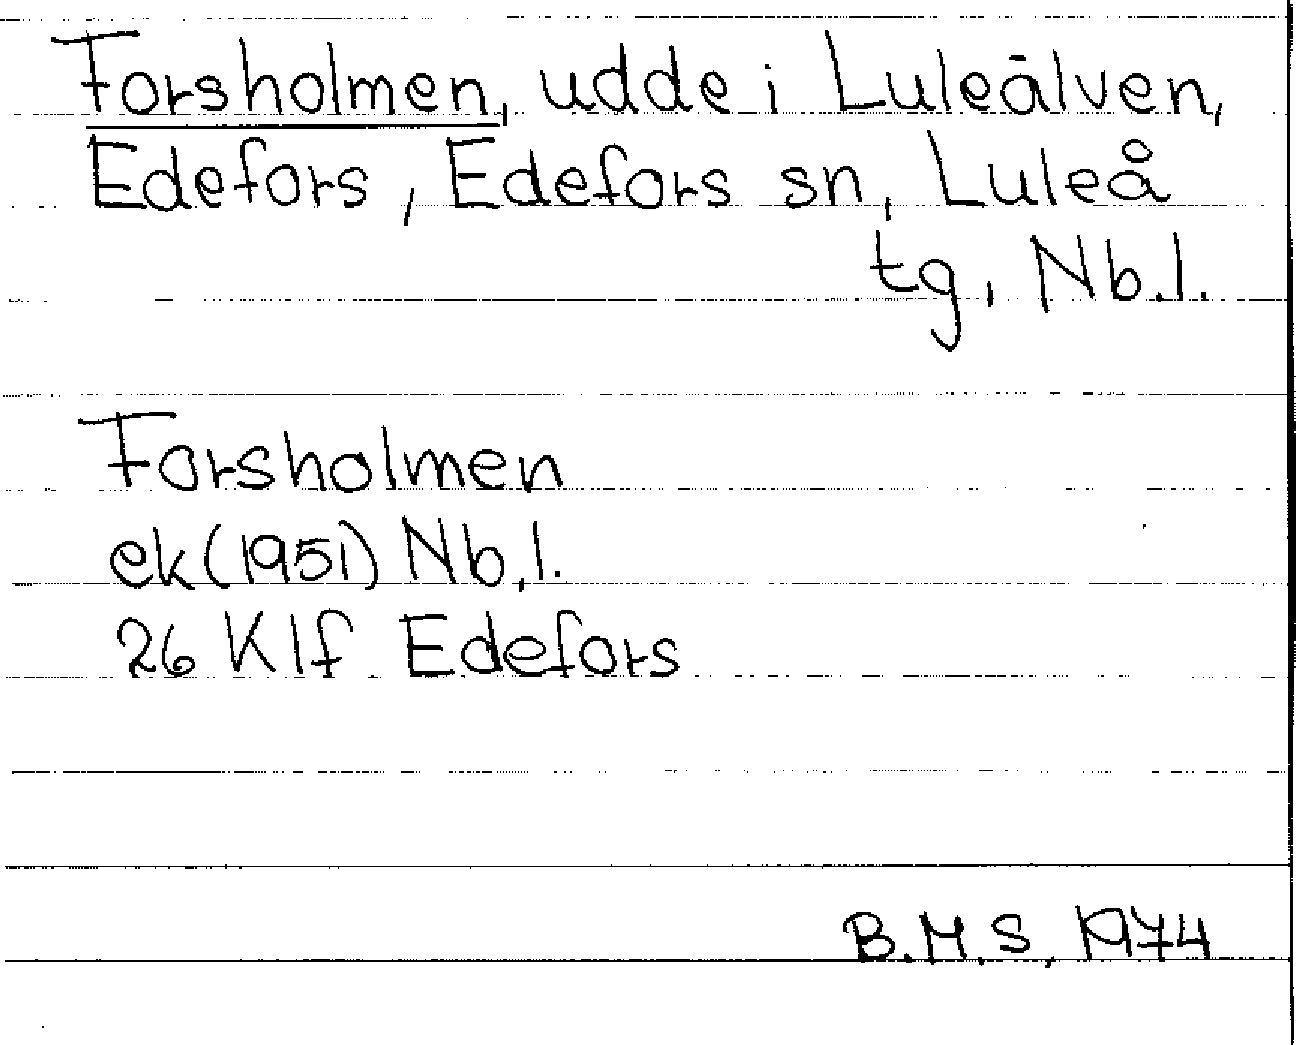 Forsholmen, udde i Luleälven,
Edefors, Edefors sn, Luleå
tg, Nb.l.
Forsholmen
ek(1951) Nb,l.
26 K lf Edefors
B.M.S, 1974